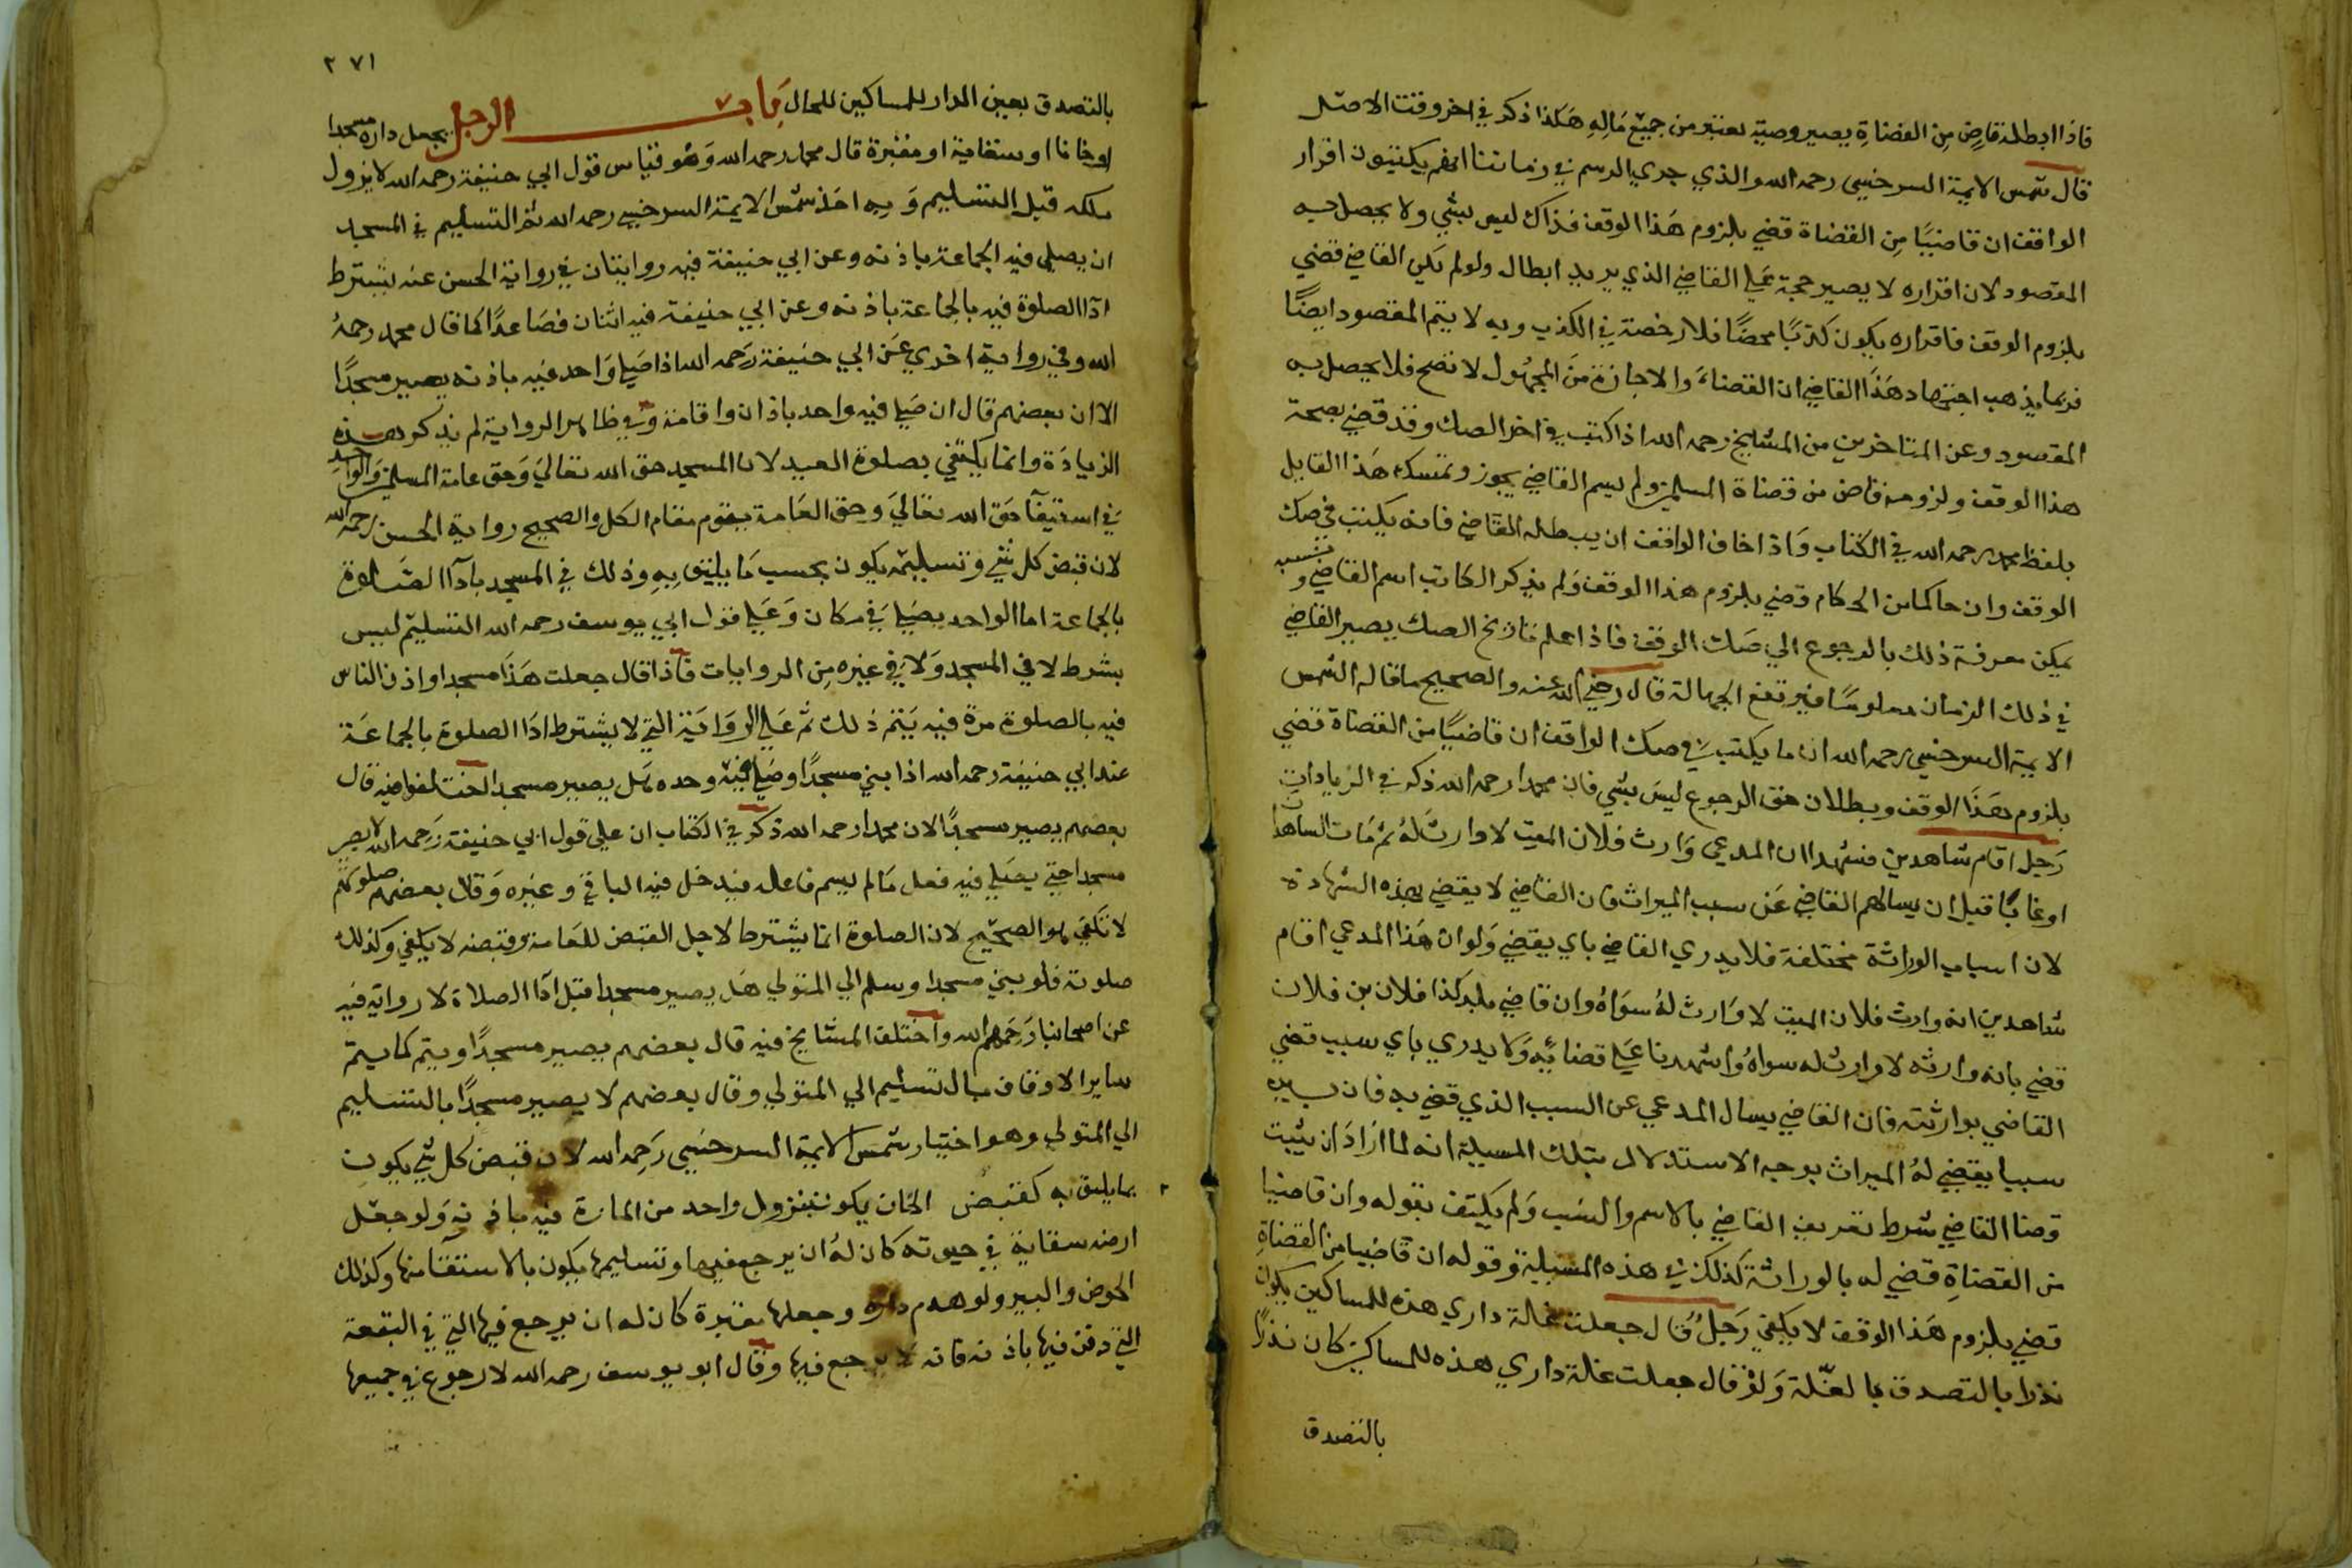 فاذا ابطله قاض من القضاة يصير وصية يعتبر من جميع ماله هكذا ذكر في اخر وقف الاصل
قال شمس الايمة السرخسي رحمه الله والذي جري الرسم في زماننا انهم يكتبون اقرار
الواقف ان قاضيا من القضاة قضي بلزوم هذا الوقف فذاك ليس بشي ولا يحصل به
المقصود لان اقراره لا يصير حجة علي القاضي الذي يريد ابطاله ولو لم يكن القاضي قضي
بلزوم الوقف فاقراره يكون كذبا محضا فلا رخصة في الكذب وبه لا يتم المقصود ايضا
فربما يذهب اجتهاد هذا القاضي ان القضاء والاجازة من المجهول لا تصح فلا يحصل به
المقصود وعن المتاخرين من المشايخ رحمه الله اذا كتب في اخر الصك وقد قضي بصحة
هذا الوقف ولزومه قاض من قضاة المسلمين ولم يسم القاضي يجوز وتمسك هذا القايل
بلفظ محمد رحمه الله في الكتاب واذا خاف الواقف ان يبطله القاضي فانه يكتب في صك
الوقف وان حاكما من الحكام قضي بلزوم هذا الوقف ولم يذكر الكاتب اسم القاضي ونسبه
يمكن معرفة ذلك بالرجوع الي صك الوقف فاذا علم تاريخ الصك يصير القاضي
في ذلك الزمان معلوما فيرتفع الجهالة قال رضي الله عنه والصحيح ما قاله الشمس
الايمة السرخسي رحمه الله ان ما يكتب في صك الواقف ان قاضيا من القضاة قضي
بلزوم هذا الوقف وبطلان حق الرجوع ليس بشي فان محمدا رحمه الله ذكر في الزيادات
رجل اقام شاهدين فشهدا ان المدعي وارث فلان الميت لا وارث له ثم مات الشاهدان
او غابا قبل ان يسالهم القاضي عن سبب الميراث فان القاضي لا يقضي بهذه الشهادة
لان اسباب الوراثة مختلفة فلا يدري القاضي باي يقضي ولو ان هذا المدعي اقام
شاهدين انه وارث فلان الميت لا وارث له سواه وان قاضي بلد كذا فلان بن فلان
قضي بانه وارثه لا وارث له سواه واشهدنا علي قضائه ولا يدري باي سبب قضي
القاضي بوارثته فان القاضي يسال المدعي عن السبب الذي قضي به فان بين
سببا يقضي له الميراث بوجه الاستدلال بتلك المسيلة انه لما اراد ان يثبت
قضا القاضي شرط تعريف القاضي بالاسم والنسب ولم يكتف بقوله وان قاضيا
من القضاة قضي له بالوراثة كذلك في هذه المسيلة وقوله ان قاضيا من القضاة
قضي بلزوم هذا الوقف لا يكفي رجل قال جعلت غلة داري هذه للمساكين يكون
نذرا بالتصدق بالغلة ولو قال جعلت غلة داري هذه للمساكين كان نذرا
بالتصدق
٢٧١
بالتصدق بعين الدار للمساكين للحال باب الرجل يجعل داره مسجدا
او خانا او سقاية او مقبرة قال محمد رحمه الله وهو قياس قول ابي حنيفة رحمه الله لا يزول
ملكه قبل التسليم وبه اخذ شمس الايمة السرخسي رحمه الله ثم التسليم في المسجد
ان يصلي فيه الجماعة باذنه وعن ابي حنيفة فيه روايتان في رواية الحسن عنه يشترط
ادا الصلوة فيه بالجماعة باذنه وعن ابي حنيفة فيه اثنان فصاعدا كما قال محمد رحمه
الله وفي رواية اخري عن ابي حنيفة رحمه الله اذا صلي واحد فيه باذنه يصير مسجدا
الا ان بعضهم قال ان صلي فيه واحد باذان واقامة وفي ظاهر الرواية لم يذكر هذه
الزيادة وانما يكتفي بصلوة العبد لان المسجد حق الله تعالي وحق عامة المسلمين والواحد
في استيفآ حق الله تعالي وحق العامة يقوم مقام الكل والصحيح رواية الحسن رحمه الله
لان قبض كل شي وتسليمه يكون بحسب ما يليق به وذلك في المسجد بادآ الصلوة
بالجماعة اما الواحد يصلي في مكان وعلي قول ابي يوسف رحمه الله التسليم ليس
بشرط لا في المسجد ولا في غيره من الروايات فاذا قال جعلت هذا مسجدا واذن الناس
فيه بالصلوة مرة فيه يتم ذلك ثم علي الرواية التي لا يشترط ادا الصلوة بالجماعة
عند ابي حنيفة رحمه الله اذا بني مسجدا وصلي فيه وحده هل يصير مسجدا اختلفوا فيه قال
بعضهم يصير مسجدا لان محمدا رحمه الله ذكر في الكتاب ان علي قول ابي حنيفة رحمه الله لا يصير
مسجدا حتي يصلي فيه فعل ما لم يسم فاعله فيدخل فيه الباني وغيره وقال بعضهم صلوته
لا تكفي هو الصحيح لان الصلوة انما يشترط لاجل القبض للعامة وقبضه لا يكفي وكذلك
صلوته فلو بني مسجدا وسلم الي المتولي هل يصير مسجدا قبل ادآ الصلاة لا رواية فيه
عن اصحابنا رحمهم الله واختلف المشايخ فيه قال بعضهم يصير مسجدا ويتم كما يتم
ساير الاوقاف بالتسليم الي المتولي وقال بعضهم لا يصير مسجدا بالتسليم
الي المتولي وهو اختيار شمس الايمة السرخسي رحمه الله لان قبض كل شي يكون
بما يليق به كقبض الخان يكون بنزول واحد من المارة فيه باذنه ولو جعل
ارضه سقاية في حيوته كان له ان يرجع فيها وتسليمها يكون بالاستقآ منها وكذلك
الحوض والبير ولو هدم داره وجعلها مقبرة كان له ان يرجع فيها التي في البقعة
التي دفن فيها باذنه فانه لا يرجع فيها وقال ابو يوسف رحمه الله لا رجوع في جميعها